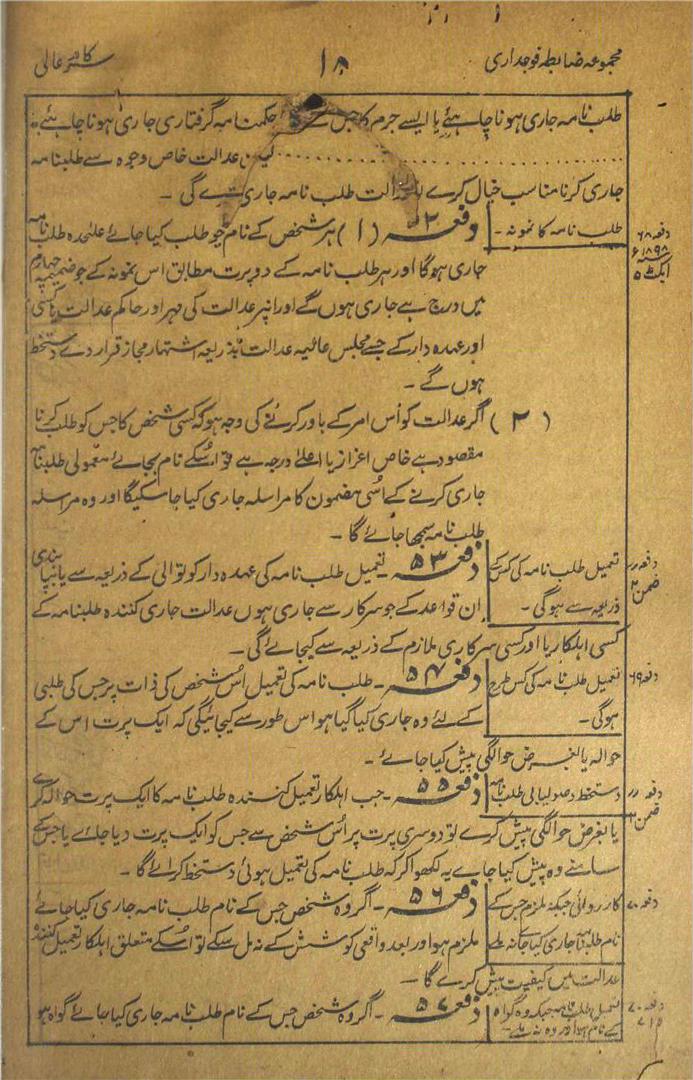 مجموعہ ضابطہ فوجداری
۱۸
سرکار عالی
طلب نامہ جاری ہونا چاہئے یا ایسے جرم کا جس کے حکمنامہ گرفتاری جاری ہونا چاہئے
عدالت خاص وجوہ سے طلبنامہ
جاری کرنا مناسب خیال کرے عدالت طلب نامہ جاری کرے گی ۔
طلب نامہ کا نمونہ ۔
دفعہ ۶۸
۱۸۹۸ء
ایکٹ ۵
دفعہ ۵۲ (۱) ہر شخص کے نام جو طلب کیا جائے علٰحدہ طلب نامہ
جاری ہوگا اور ہر طلب نامہ کے دو پرت مطابق اس نمونہ کے جو ضمیمہ چہارم
میں درج ہے جاری ہوں گے اور انپر عدالت کی مہر اور حاکم عدالت یا کسی
اور عہدہ دار کے جسے مجلس عالیہ عدالت بذریعہ اشتہار مجاز قرار دے دستخط
ہوں گے ۔
(۲) اگر عدالت کو اُس امر کے باور کرنے کی وجہ ہو کہ کسی شخص کا جس کو طلب کرنا
مقصود ہے خاص اعزاز یا اعلےٰ درجہ ہے تو اُسکے نام بجائے معمولی طلبنامہ
جاری کرنے کے اُسی مضمون کا مراسلہ جاری کیا جا سکیگا اور وہ مراسلہ
طلب نامہ سمجھا جائے گا ۔
تعمیل طلب نامہ کی کس کے
ذریعہ سے ہوگی ۔
دفعہ
ضمن ۲
دفعہ ۵۳ ۔ تعمیل طلب نامہ کی عہدہ دار کوتوالی کے ذریعہ سے یا بپابندی
ان قواعد کے جو سرکار سے جاری ہوں عدالت جاری کنندہ طلبنامہ کے
کسی اہلکار یا اور کسی سرکاری ملازم کے ذریعہ سے کیجائے گی ۔
تعمیل طلب نامہ کی کس طرح
ہوگی ۔
دفعہ ۶۹
دفعہ ۵۴ ۔ طلب نامہ کی تعمیل اُس شخص کی ذات پر جس کی طلبی
کے لئے وہ جاری کیا گیا ہو اس طور سے کیجائیگی کہ ایک پرت اس کے
حوالہ یا بغرض حوالگی پیش کیا جائے ۔
دستخط وصولیابی طلب نامہ
دفعہ
ضمن
دفعہ ۵۵ ۔ جب اہلکار تعمیل کنندہ طلب نامہ کا ایک پرت حوالہ کرے
یا بغرض حوالگی پیش کرے تو دوسری پرت پر اُس شخص سے جس کو ایک پرت دیا جاے یا جسکے
سامنے وہ پیش کیا جاے یہ لکھوا کر کہ طلب نامہ کی تعمیل ہوئی دستخط کرائے گا ۔
کارروائی جبکہ ملزم جس کے
نام طلبنامہ جاری کیا جائے نہ ملے
دفعہ ۷۰
دفعہ ۵۶ ۔ اگر وہ شخص جس کے نام طلب نامہ جاری کیا جائے
ملزم ہو اور بعد واقعی کوشش کے نہ مل سکے تو اُسکے متعلق اہلکار تعمیل کنندہ
عدالت میں کیفیت پیش کرے گا ۔
تعمیل طلب نامہ جبکہ وہ گواہ
کے نام ہو اور وہ نہ ملے ۔
دفعہ ۷۰
۷۱
دفعہ ۵۷ ۔ اگر وہ شخص جس کے نام طلب نامہ جاری کیا جائے گواہ ہو